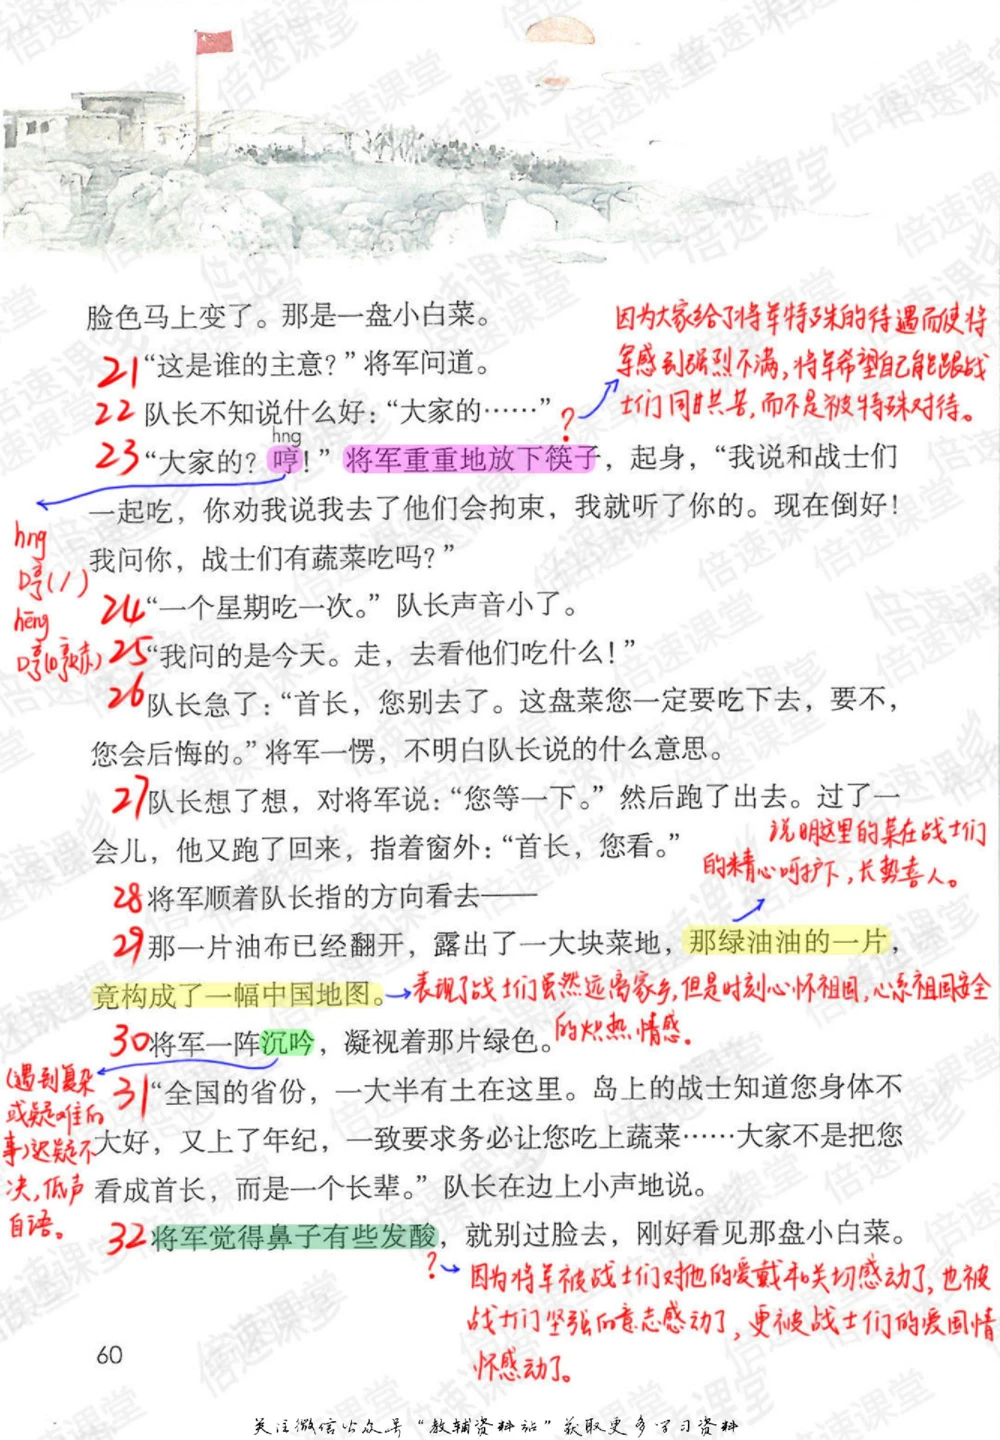 脸色马上变了。那是一盘小白菜。
因为大家给了将军特殊的待遇而使将
军感到强烈不满,将军希望自己能跟战
士们同甘共苦,而不是被特殊对待。
21 “这是谁的主意?”将军问道。
22 队长不知说什么好:“大家的……”
?
hng
23 “大家的?哼!”将军重重地放下筷子,起身,“我说和战士们
一起吃,你劝我说我去了他们会拘束,我就听了你的。现在倒好!
我问你,战士们有蔬菜吃吗?”
hng
哼(/)
hēng
哼(哼歌)
24 “一个星期吃一次。”队长声音小了。
25 “我问的是今天。走,去看他们吃什么!”
26 队长急了:“首长,您别去了。这盘菜您一定要吃下去,要不,
您会后悔的。”将军一愣,不明白队长说的什么意思。
27 队长想了想,对将军说:“您等一下。”然后跑了出去。过了一
会儿,他又跑了回来,指着窗外:“首长,您看。”
说明这里的菜在战士们
的精心呵护下,长势喜人。
28 将军顺着队长指的方向看去——
29 那一片油布已经翻开,露出了一大块菜地,那绿油油的一片,
竟构成了一幅中国地图。
表现了战士们虽然远离家乡,但是时刻心怀祖国,心系祖国安全
的炽热情感。
30 将军一阵沉吟,凝视着那片绿色。
(遇到复杂
或疑难的
事)迟疑不
决,低声
自语。
31 “全国的省份,一大半有土在这里。岛上的战士知道您身体不
大好,又上了年纪,一致要求务必让您吃上蔬菜……大家不是把您
看成首长,而是一个长辈。”队长在边上小声地说。
32 将军觉得鼻子有些发酸,就别过脸去,刚好看见那盘小白菜。
?
因为将军被战士们对他的爱戴和关切感动了,也被
战士们坚强的意志感动了,更被战士们的爱国情
怀感动了。
60
关注微信公众号“教辅资料站”获取更多学习资料
倍速课堂